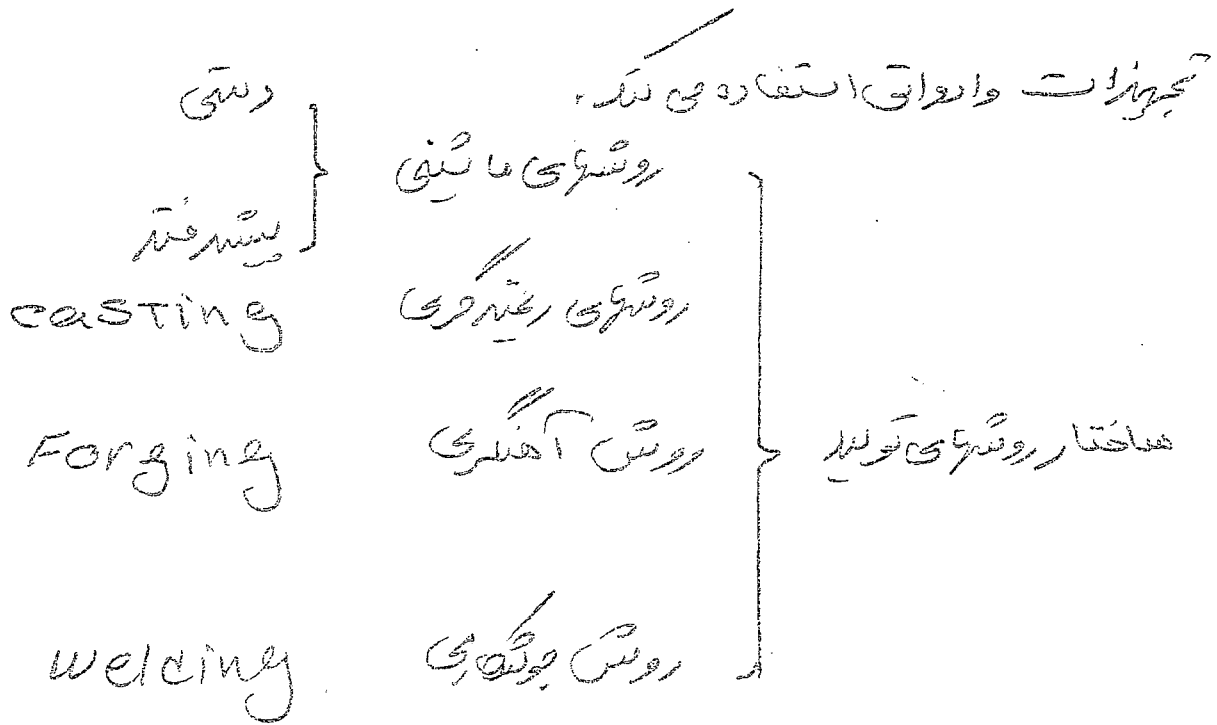 تجهیزات وادواتی استفاده می کند.
ساختار روشهای تولید
روشهای ماشینی
دستی
پیشرفته
روشهای ریخته گری casting
روش آهنگری Forging
روش جوشکاری welding